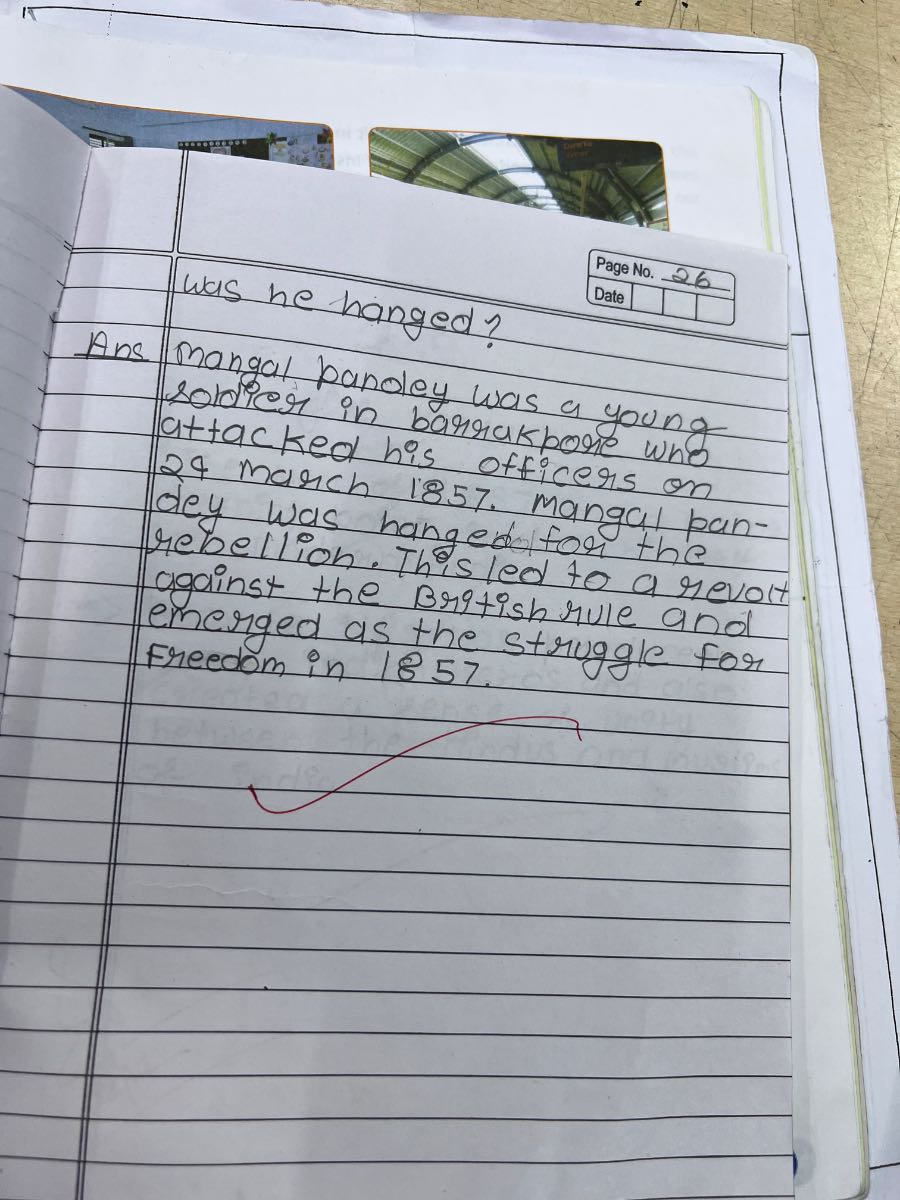 Page No. 26
Date
was he hanged?
Ans mangal pandey was a young
soldier in barrakpore who
attacked his officers on
29 march 1857. mangal pan-
dey was hanged for the
rebellion. This led to a revolt
against the British rule and
emerged as the struggle for
Freedom in 1857.